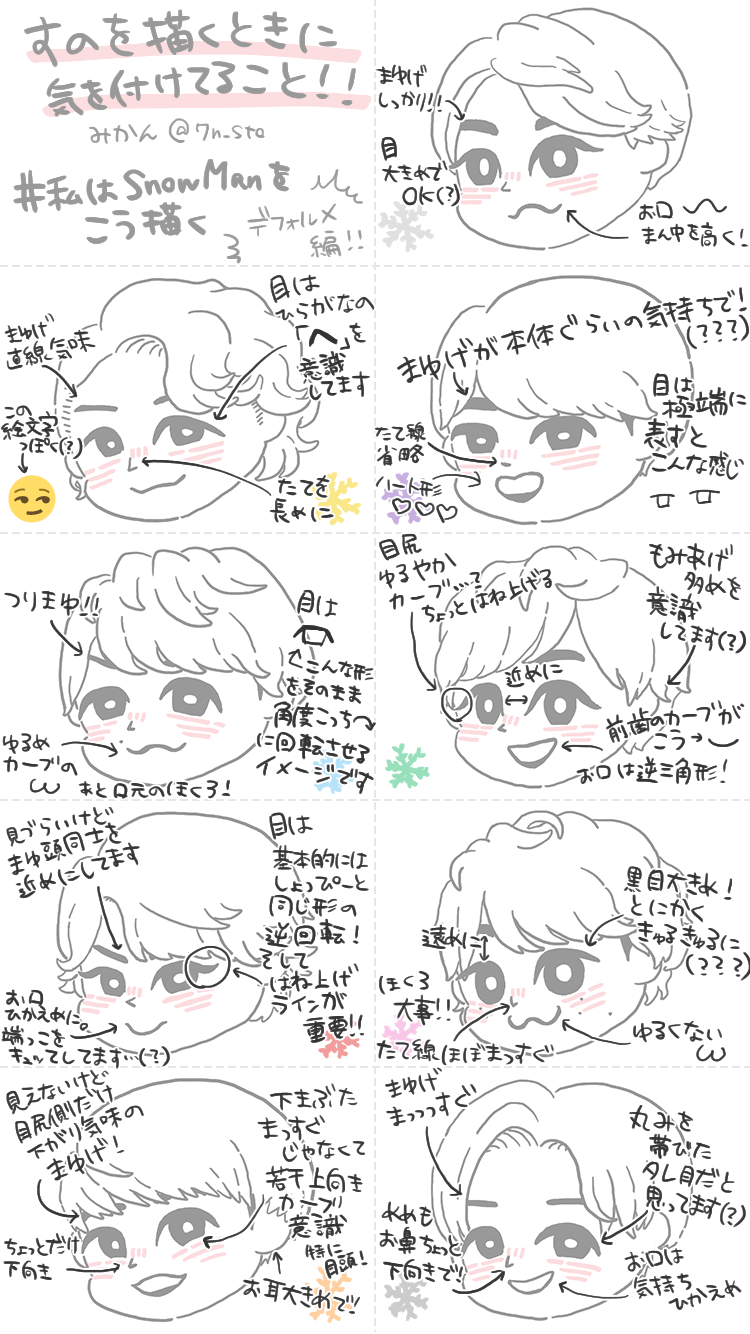 すのを描くときに
気を付けてること!!
みかん @7n_sto
#私はSnowManを
こう描く
デフォルメ
編!!
まゆげ
しっかり!!
目
大きめで
OK(?)
お口
まん中を高く!
目は
ひらがなの
「へ」を
意識
してます
まゆげ
直線気味
この
絵文字
っぽく(?)
たてを
長めに
まゆげが本体ぐらいの気持ちで!
(???)
目は
極端に
表すと
こんな感じ
たて線
省略
ハート形
♡♡♡
つりまゆ!!
目は
↑こんな形
をそのまま
角度こっち
に回転させる
イメージです
ゆるめ
カーブの
ω
あと口元のほくろ!
目尻
ゆるやか
カーブ
ちょっとはね上げる
もみあげ
多めを
意識
してます(?)
近めに
↔
前歯のカーブが
こう→
お口は逆三角形!
見づらいけど
まゆ頭同士を
近めにしてます
目は
基本的には
しょっぴーと
同じ形の
逆回転!
そして
はね上げ
ラインが
重要!!
お口
ひかえめに。
端っこを
キュッてしてます…(?)
黒目大きめ!
とにかく
きゅるきゅるに
(???)
遠めに
ほくろ
大事!!
たて線ほぼまっすぐ
ゆるくない
ω
見えないけど
目尻側だけ
下がり気味の
まゆげ!
下まぶた
まっすぐ
じゃなくて
若干上向き
カーブ
意識
特に
目頭!
ちょっとだけ
下向き
お耳大きめで!!
まゆげ
まっっっすぐ
丸みを
帯びた
タレ目だと
思ってます(?)
お鼻ちょっと
下向きで!
お口は
気持ち
ひかえめ